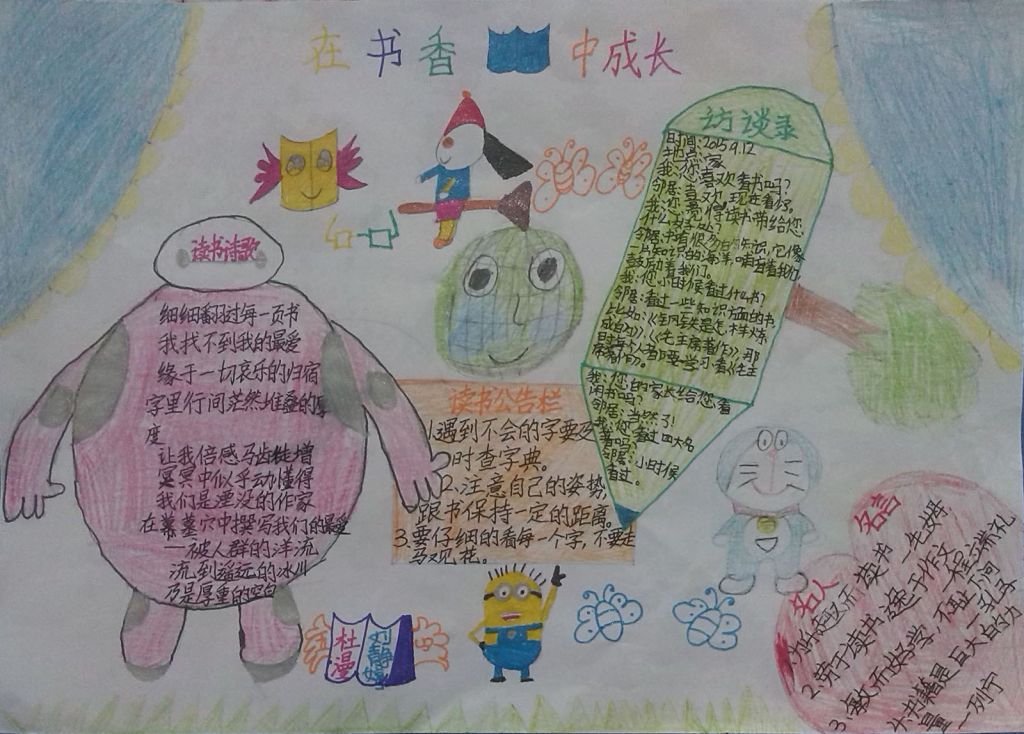 在书香中成长
读书诗歌
细细翻过每一页书
我找不到我的最爱
缘于一切哀乐的归宿
字里行间茫然堆叠的厚
度
让我倍感马齿徒增
冥冥中似乎去懂得
我们是湮没的作家
在墓穴中撰写我们的最爱
—被人群的洋流
流到遥远的冰川
乃是厚重的空白
读书公告栏
1.遇到不会的字要及
时查字典。
2.注意自己的姿势,
跟书保持一定的距离。
3.要仔细的看每一个字,不要走
马观花。
访谈录
时间:2015.9.12
地点:家
我:您喜欢看书吗?
邻居:喜欢,现在看得。
我:您觉得读书带给您
什么好处?
我:您小时候看过什么书?
邻居:看过一些知识方面的书,
比如:《钢铁是怎样炼
成的》,《毛主席著作》,那
时每个人都要学习看《毛主
席著作》。
我:您的家长给您看
闲书吗?
邻居:当然了!
我:您看过四大名
著吗?
邻居:小时候
看过。
杜漫
刘静婷
名人名言
1.
2.勤于读书,逸于作文 —程端礼
3.敏而好学,不耻下问
—孔子
4.书籍是巨大的力
量 —列宁